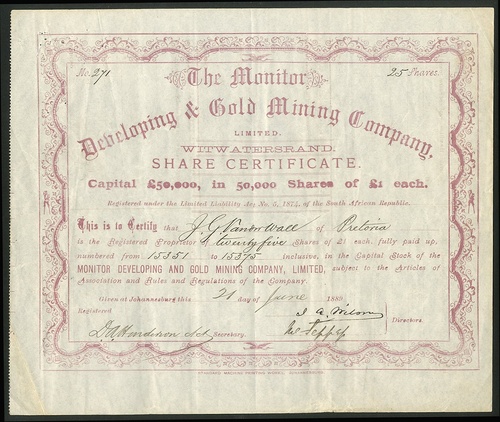 No. 271
25 Shares.
The Monitor
Developing & Gold Mining Company,
LIMITED.
WITWATERSRAND.
SHARE CERTIFICATE.
Capital £50,000, in 50,000 Shares of £1 each.
Registered under the Limited Liability Act No. 5, 1874, of the South African Republic.
This is to Certify that J. G. Vanderwall of Pretoria
is the Registered Proprietor of twenty five Shares of £1 each, fully paid up,
numbered from 15351 to 15375 inclusive, in the Capital Stock of the
MONITOR DEVELOPING AND GOLD MINING COMPANY, LIMITED, subject to the Articles of
Association and Rules and Regulations of the Company.
Given at Johannesburg this 21 day of June 1889
Registered
Secretary.
Wilson
Directors.